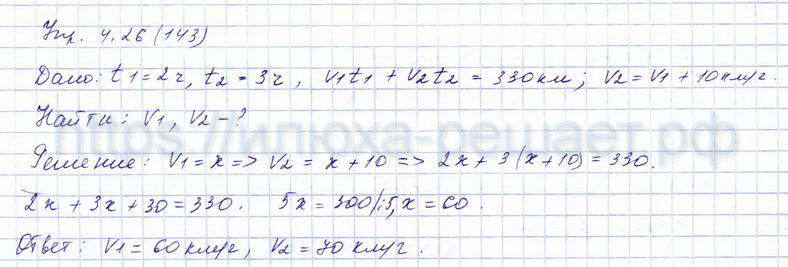 Упр. 4.26 (143)
Дано: t1 = 2ч, t2 = 3ч, v1t1 + v2t2 = 330 км; v2 = v1 + 10 км/ч.
Найти: v1, v2 - ?
https://илюха-решает.рф
Решение: v1 = x => v2 = x + 10 => 2x + 3(x + 10) = 330.
2x + 3x + 30 = 330. 5x = 300 |:5, x = 60.
Ответ: v1 = 60 км/ч, v2 = 70 км/ч.